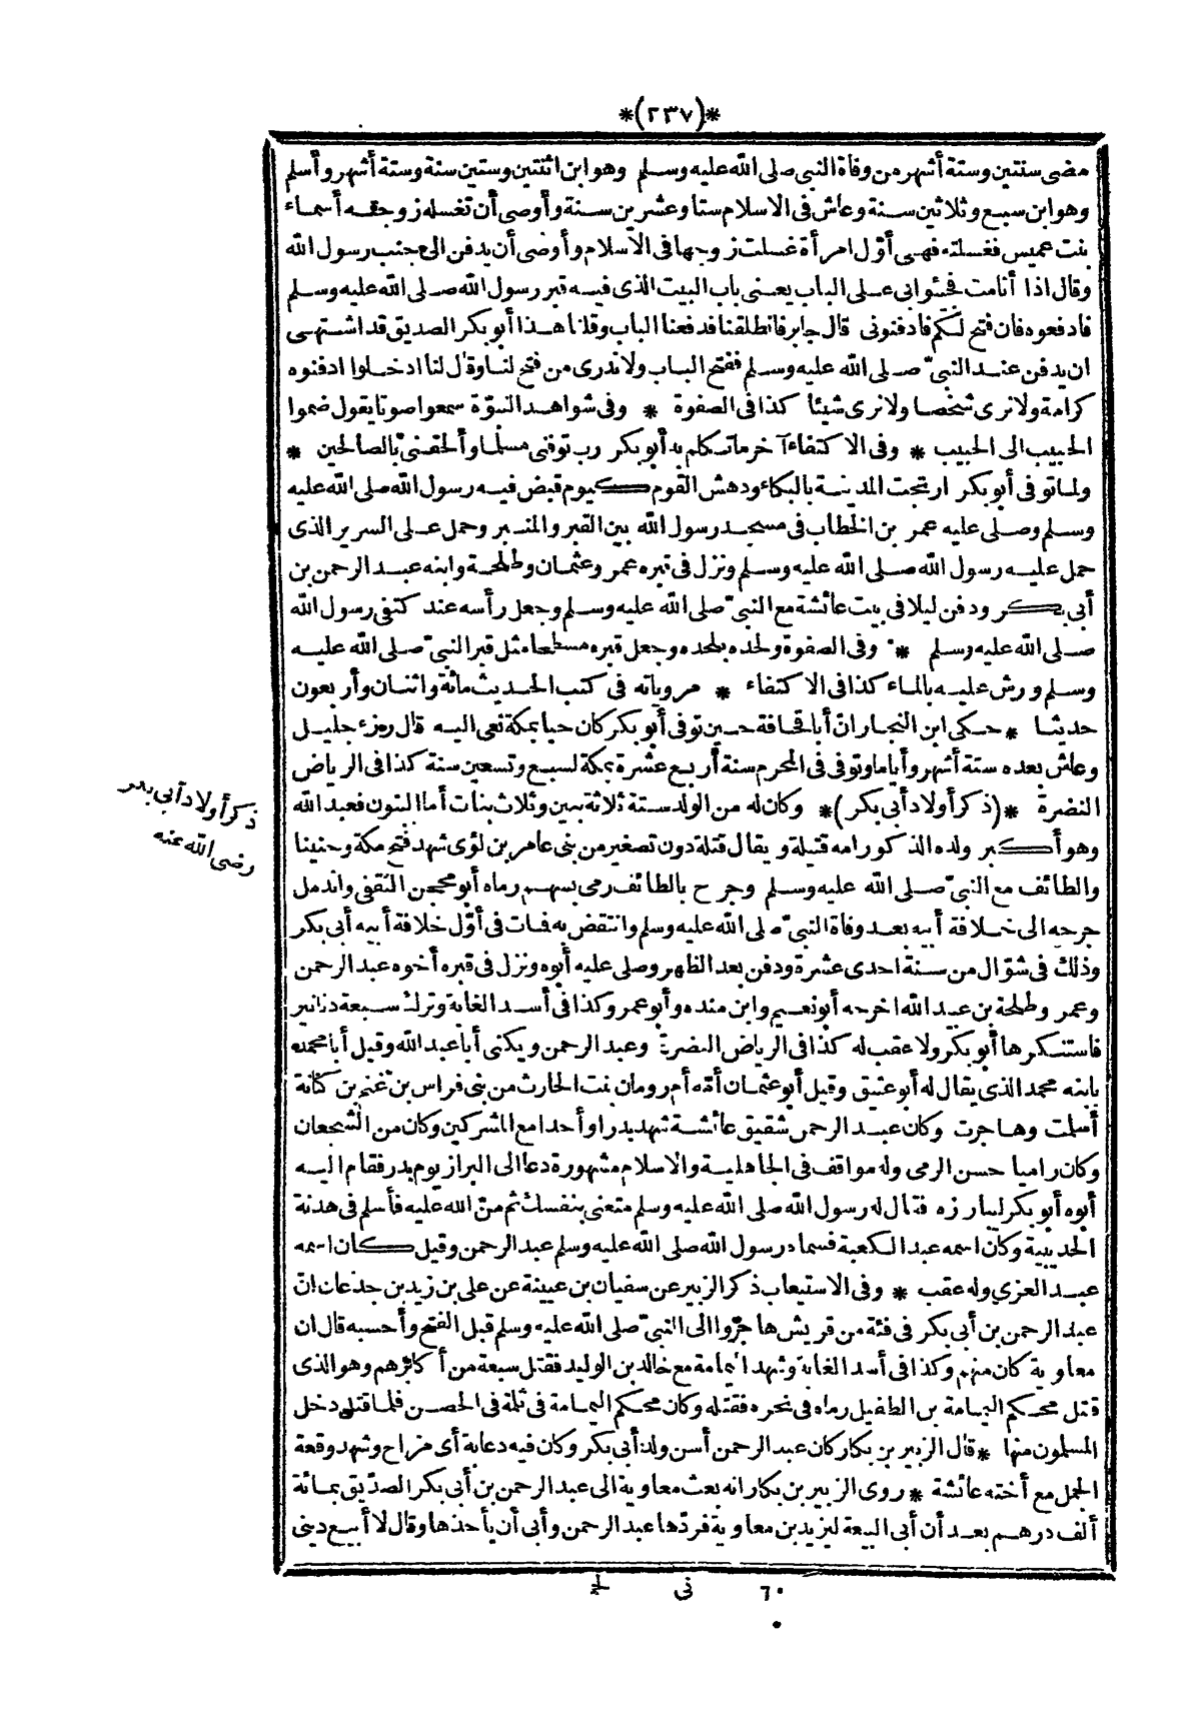 *(٢٣٧)*
مضى سنتين وستة أشهر من وفاة النبي صلى الله عليه وسلم وهو ابن اثنتين وستين سنة وستة أشهر وأسلم
وهو ابن سبع وثلاثين سنة وعاش فى الاسلام ستا وعشرين سنة وأوصى أن تغسله زوجته أسماء
بنت عميس فغسلته فهى أوّل امرأة غسلت زوجها فى الاسلام وأوصى أن يدفن الى جنب رسول الله
وقال اذا أنامت فجيئوا بى على الباب يعنى باب البيت الذى فيه قبر رسول الله صلى الله عليه وسلم
فادفعوه فان فتح لكم فادفنونى قال جابر فانطلقنا فدفعنا الباب وقلنا هذا أبو بكر الصديق قد اشتهى
ان يدفن عند النبىّ صلى الله عليه وسلم ففتح الباب ولا ندرى من فتح لنا وقال لنا ادخلوا ادفنوه
كرامة ولا نرى شخصا ولا نرى شيئا كذا فى الصفوة * وفى شواهد النبوّة سمعوا صوتا يقول ضموا
الحبيب الى الحبيب * وفى الاكتفاء آخر ما تكلم به أبو بكر رب توفنى مسلما وألحقنى بالصالحين *
ولما توفى أبو بكر ارتجت المدينة بالبكاء ودهش القوم كيوم قبض فيه رسول الله صلى الله عليه
وسلم وصلى عليه عمر بن الخطاب فى مسجد رسول الله بين القبر والمنبر وحمل على السرير الذى
حمل عليه رسول الله صلى الله عليه وسلم ونزل فى قبره عمر وعثمان وطلحة وابنه عبد الرحمن بن
أبى بكر ودفن ليلا فى بيت عائشة مع النبىّ صلى الله عليه وسلم وجعل رأسه عند كتفى رسول الله
صلى الله عليه وسلم * وفى الصفوة ولحده بلحده وجعل قبره مسطحا مثل قبر النبىّ صلى الله عليه
وسلم ورش عليه بالماء كذا فى الاكتفاء * مروياته فى كتب الحديث مائة واثنان وأربعون
حديثا * حكى ابن النجار انّ أبا قحافة حين توفى أبو بكر كان حيا بمكة نعى اليه قال رزء جليل
وعاش بعده ستة أشهر وأياما وتوفى فى المحرم سنة أربع عشرة بمكة لسبع وتسعين سنة كذا فى الرياض
النضرة *(ذكر أولاد أبى بكر)* وكان له من الولد ستة ثلاثة بنين وثلاث بنات أما البنون فعبد الله
وهو أكبر ولده الذكور امه قتيلة ويقال قتلة دون تصغير من بنى عامر بن لؤى شهد فتح مكة وحنينا
والطائف مع النبىّ صلى الله عليه وسلم وجرح بالطائف رمى بسهم رماه أبو محجن الثقفى واندمل
جرحه الى خلافة أبيه بعد وفاة النبىّ صلى الله عليه وسلم وانتقض به فمات فى أوّل خلافة أبيه أبى بكر
وذلك فى شوّال من سنة احدى عشرة ودفن بعد الظهر وصلى عليه أبوه ونزل فى قبره أخوه عبد الرحمن
وعمر وطلحة بن عبد الله اخرجه أبو نعيم وابن منده وأبو عمر وكذا فى أسد الغابة وترك سبعة دنانير
فاستنكرها أبو بكر ولا عقب له كذا فى الرياض النضرة وعبد الرحمن ويكنى أبا عبد الله وقيل أبا محمد
بابنه محمد الذى يقال له أبو عتيق وقيل أبو عثمان أمّه أم رومان بنت الحارث من بنى فراس بن غنم بن كنانة
أسلمت وهاجرت وكان عبد الرحمن شقيق عائشة شهد بدرا وأحدا مع المشركين وكان من الشجعان
وكان راميا حسن الرمى وله مواقف فى الجاهلية والاسلام مشهورة دعا الى البراز يوم بدر فقام اليه
أبوه أبو بكر ليبارزه فقال له رسول الله صلى الله عليه وسلم متعنى بنفسك ثم منّ الله عليه فأسلم فى هدنة
الحديبية وكان اسمه عبد الكعبة فسماه رسول الله صلى الله عليه وسلم عبد الرحمن وقيل كان اسمه
عبد العزى وله عقب * وفى الاستيعاب ذكر الزبير عن سفيان بن عيينة عن على بن زيد بن جدعان انّ
عبد الرحمن بن أبى بكر فى فئة من قريش هاجروا الى النبىّ صلى الله عليه وسلم قبل الفتح وأحسبه قال ان
معاوية كان منهم وكذا فى أسد الغابة وشهد اليمامة مع خالد بن الوليد فقتل سبعة من أكابرهم وهو الذى
قتل محكم اليمامة بن الطفيل رماه فى نحره فقتله وكان محكم اليمامة فى ثلمة فى الحصن فلما قتل دخل
المسلمون منها * قال الزبير بن بكار كان عبد الرحمن أسن ولد أبى بكر وكان فيه دعابة أى مزاح وشهد وقعة
الجمل مع أخته عائشة * روى الزبير بن بكار انه بعث معاوية الى عبد الرحمن بن أبى بكر الصدّيق بمائة
ألف درهم بعد أن أبى البيعة ليزيد بن معاوية فردّها عبد الرحمن وأبى أن يأخذها وقال لا أبيع دينى
ذكر أولاد أبى بكر
رضى الله عنه
٦٠ نى خ